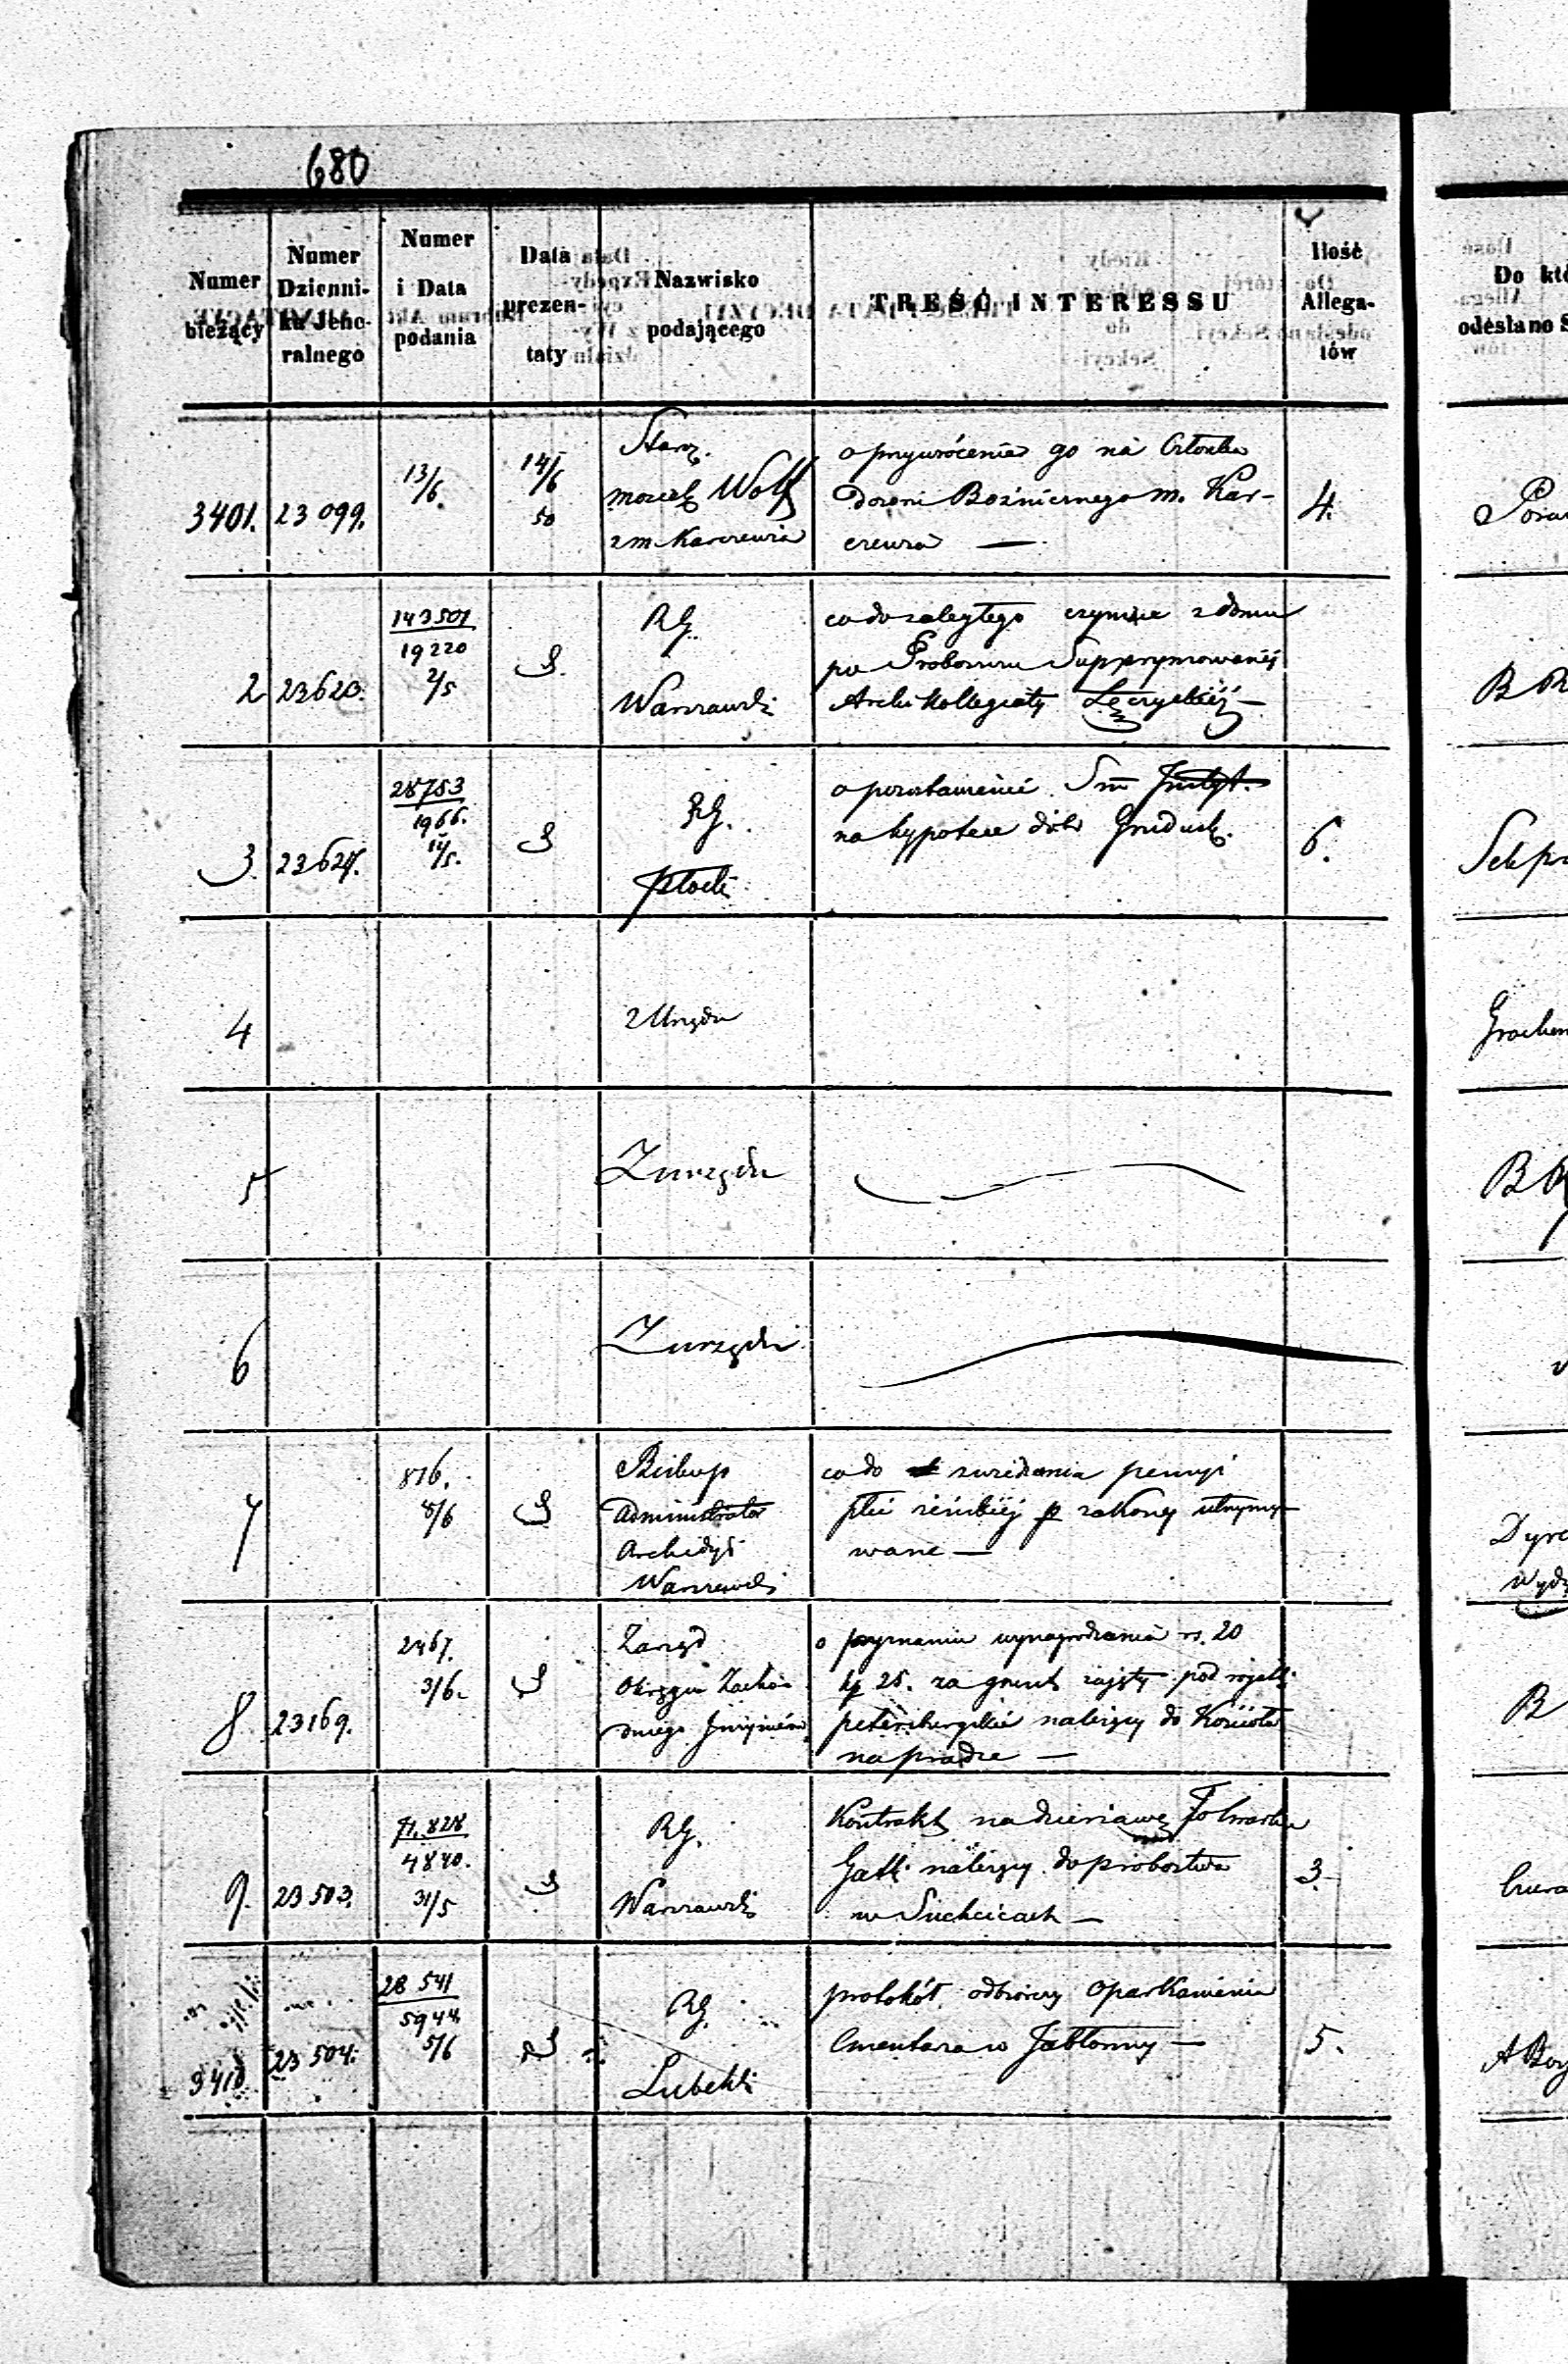 680
Numer bieżący
Numer Dzienni- ka Jene- ralnego
Numer i Data podania
Data prezen- taty
Nazwisko podającego
TREŚĆ INTERESSU
Ilość Allega- tów
Do odesłano
3401. 23 099. 13/6. 14/6 50
Starz.
Wolf
z m Karczewia
o przywrócenie go na Członka
Dozoru Bóżnicznego m. Kar-
czewia —
4.
2 23623. 143501 19220 2/5 S.
RG.
Warszawski
co do zaległego czynszu z domu
po Proboszczu Supprymowanej
Archi Kollegiaty Łęczyckiéj —
3. 23624. 28753 1966. 14/5. S
RG.
Płocki
na hypotece dóbr Grudusk.
6.
4
z Urzędu
5
Z urzędu
6
Z urzędu
7 816. 8/6 S
Biskup
Administrator
Archidyi
Warszawski
co do pensyi
płci żeńskiéj p zakony utrzymy-
wane —
8 23169. 2467. 3/6. S
Zarząd
Okręgu Zacho-
dniego Inżynierów
o przyznaniu wynagrodzenia rs. 20
k 25. za grunt zajęty pod rogatki
petersburgskie należący do Kościoła
na pradze —
9. 23 503. 71.828 4840. 31/5 S
RG.
Warszawski
Kontrakt na dzierżawę Folwarku
Gatki należący do probostwa
w Suchcicach —
3.
3410 23 504. 28 541 5944. 5/6 S
RG.
Lubelski
protokół odbiorczy oparkanienia
Cmentarza w Jabłonny —
5.